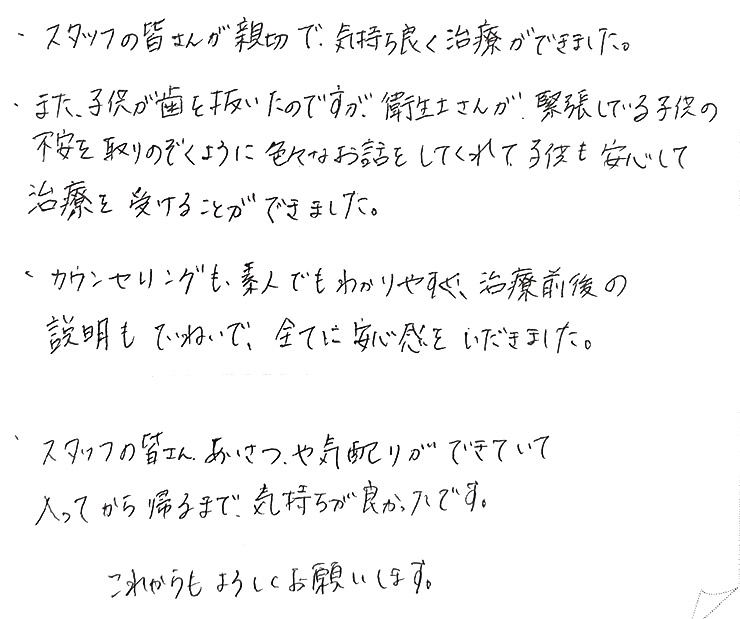 ・スタッフの皆さんが親切で、気持ち良く治療ができました。
・また、子供が歯を抜いたのですが、衛生士さんが、緊張している子供の
不安を取りのぞくように色々なお話をしてくれて、子供も安心して
治療を受けることができました。
・カウンセリングも、素人でもわかりやすく、治療前後の
説明もていねいで、全てに安心感をいだきました。
・スタッフの皆さん、あいさつ、や気配りができていて
入ってから帰るまで、気持ちが良かったです。
これからもよろしくお願いします。